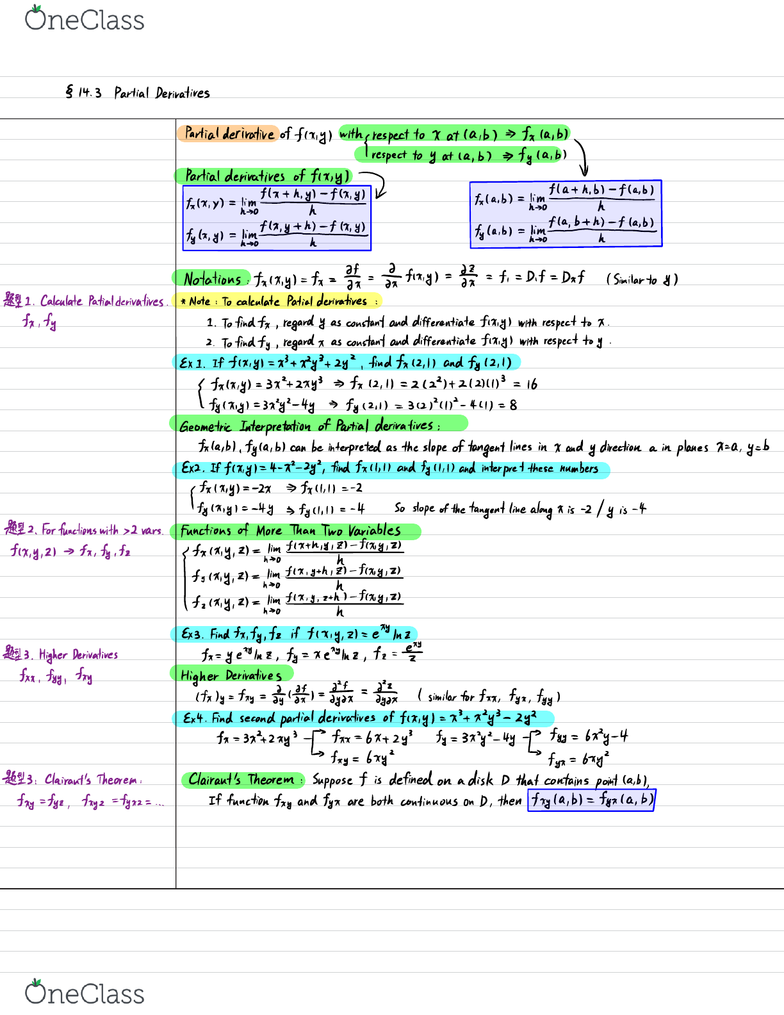 OneClass
§ 14.3 Partial Derivatives
Partial derivative of f(x,y) with { respect to x at (a,b) ⇒ fx (a,b)
respect to y at (a,b) ⇒ fy (a,b)
Partial derivatives of f(x,y)
fx(x,y) = lim h→0 (f(x+h,y) - f(x,y))/h
fy(x,y) = lim h→0 (f(x,y+h) - f(x,y))/h
fx(a,b) = lim h→0 (f(a+h,b) - f(a,b))/h
fy(a,b) = lim h→0 (f(a,b+h) - f(a,b))/h
Notations: fx(x,y) = fx = ∂f/∂x = ∂/∂x f(x,y) = ∂z/∂x = f1 = D1f = Dxf (Similar to y)
题型1. Calculate Patial derivatives.
fx, fy
* Note: To calculate Patial derivatives:
1. To find fx, regard y as constant and differentiate f(x,y) with respect to x.
2. To find fy, regard x as constant and differentiate f(x,y) with respect to y.
Ex 1. If f(x,y) = x³+x²y³+2y², find fx(2,1) and fy(2,1)
{ fx(x,y) = 3x²+2xy³ ⇒ fx(2,1) = 2(2²)+2(2)(1)³ = 16
fy(x,y) = 3x²y²-4y ⇒ fy(2,1) = 3(2)²(1)²-4(1) = 8
Geometric Interpretation of Partial derivatives:
fx(a,b), fy(a,b) can be interpreted as the slope of tangent lines in x and y direction a in planes x=a, y=b
Ex2. If f(x,y) = 4-x²-2y², find fx(1,1) and fy(1,1) and interpret these numbers
{ fx(x,y) = -2x ⇒ fx(1,1) = -2
fy(x,y) = -4y ⇒ fy(1,1) = -4 So slope of the tangent line along x is -2 / y is -4
题型2. For functions with >2 vars.
f(x,y,z) → fx, fy, fz
Functions of More Than Two Variables
{ fx(x,y,z) = lim h→0 (f(x+h,y,z) - f(x,y,z))/h
fy(x,y,z) = lim h→0 (f(x,y+h,z) - f(x,y,z))/h
fz(x,y,z) = lim h→0 (f(x,y,z+h) - f(x,y,z))/h
Ex3. Find fx, fy, fz if f(x,y,z) = e^xy ln z
fx = y e^xy ln z, fy = x e^xy ln z, fz = e^xy/z
题型3. Higher Derivatives
fxx, fyy, fxy
Higher Derivatives
(fx)y = fxy = ∂/∂y (∂f/∂x) = ∂²f/∂y∂x = ∂²z/∂y∂x (similar for fxx, fyx, fyy)
Ex4. Find second partial derivatives of f(x,y) = x³+x²y³-2y²
fx = 3x²+2xy³ → fxx = 6x+2y³ fy = 3x²y²-4y → fyy = 6x²y-4
→ fxy = 6xy² → fyx = 6xy²
题型3: Clairaut's Theorem.
fxy = fyx, fxyz = fyxz = ...
Clairaut's Theorem: Suppose f is defined on a disk D that contains point (a,b),
If function fxy and fyx are both continuous on D, then fxy(a,b) = fyx(a,b)
OneClass